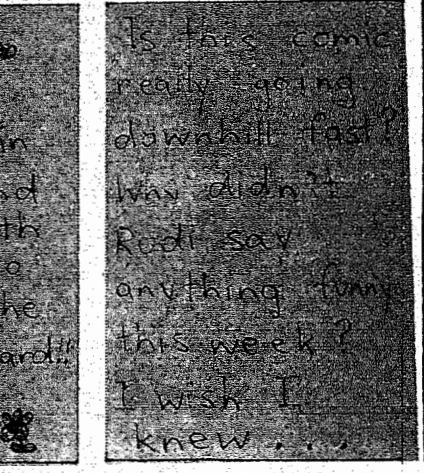 in
nd
th
o
he
ard!!
Is this comic
really going
downhill fast?
Why didn't
Rudi say
anything funny
this week?
I wish I
knew...